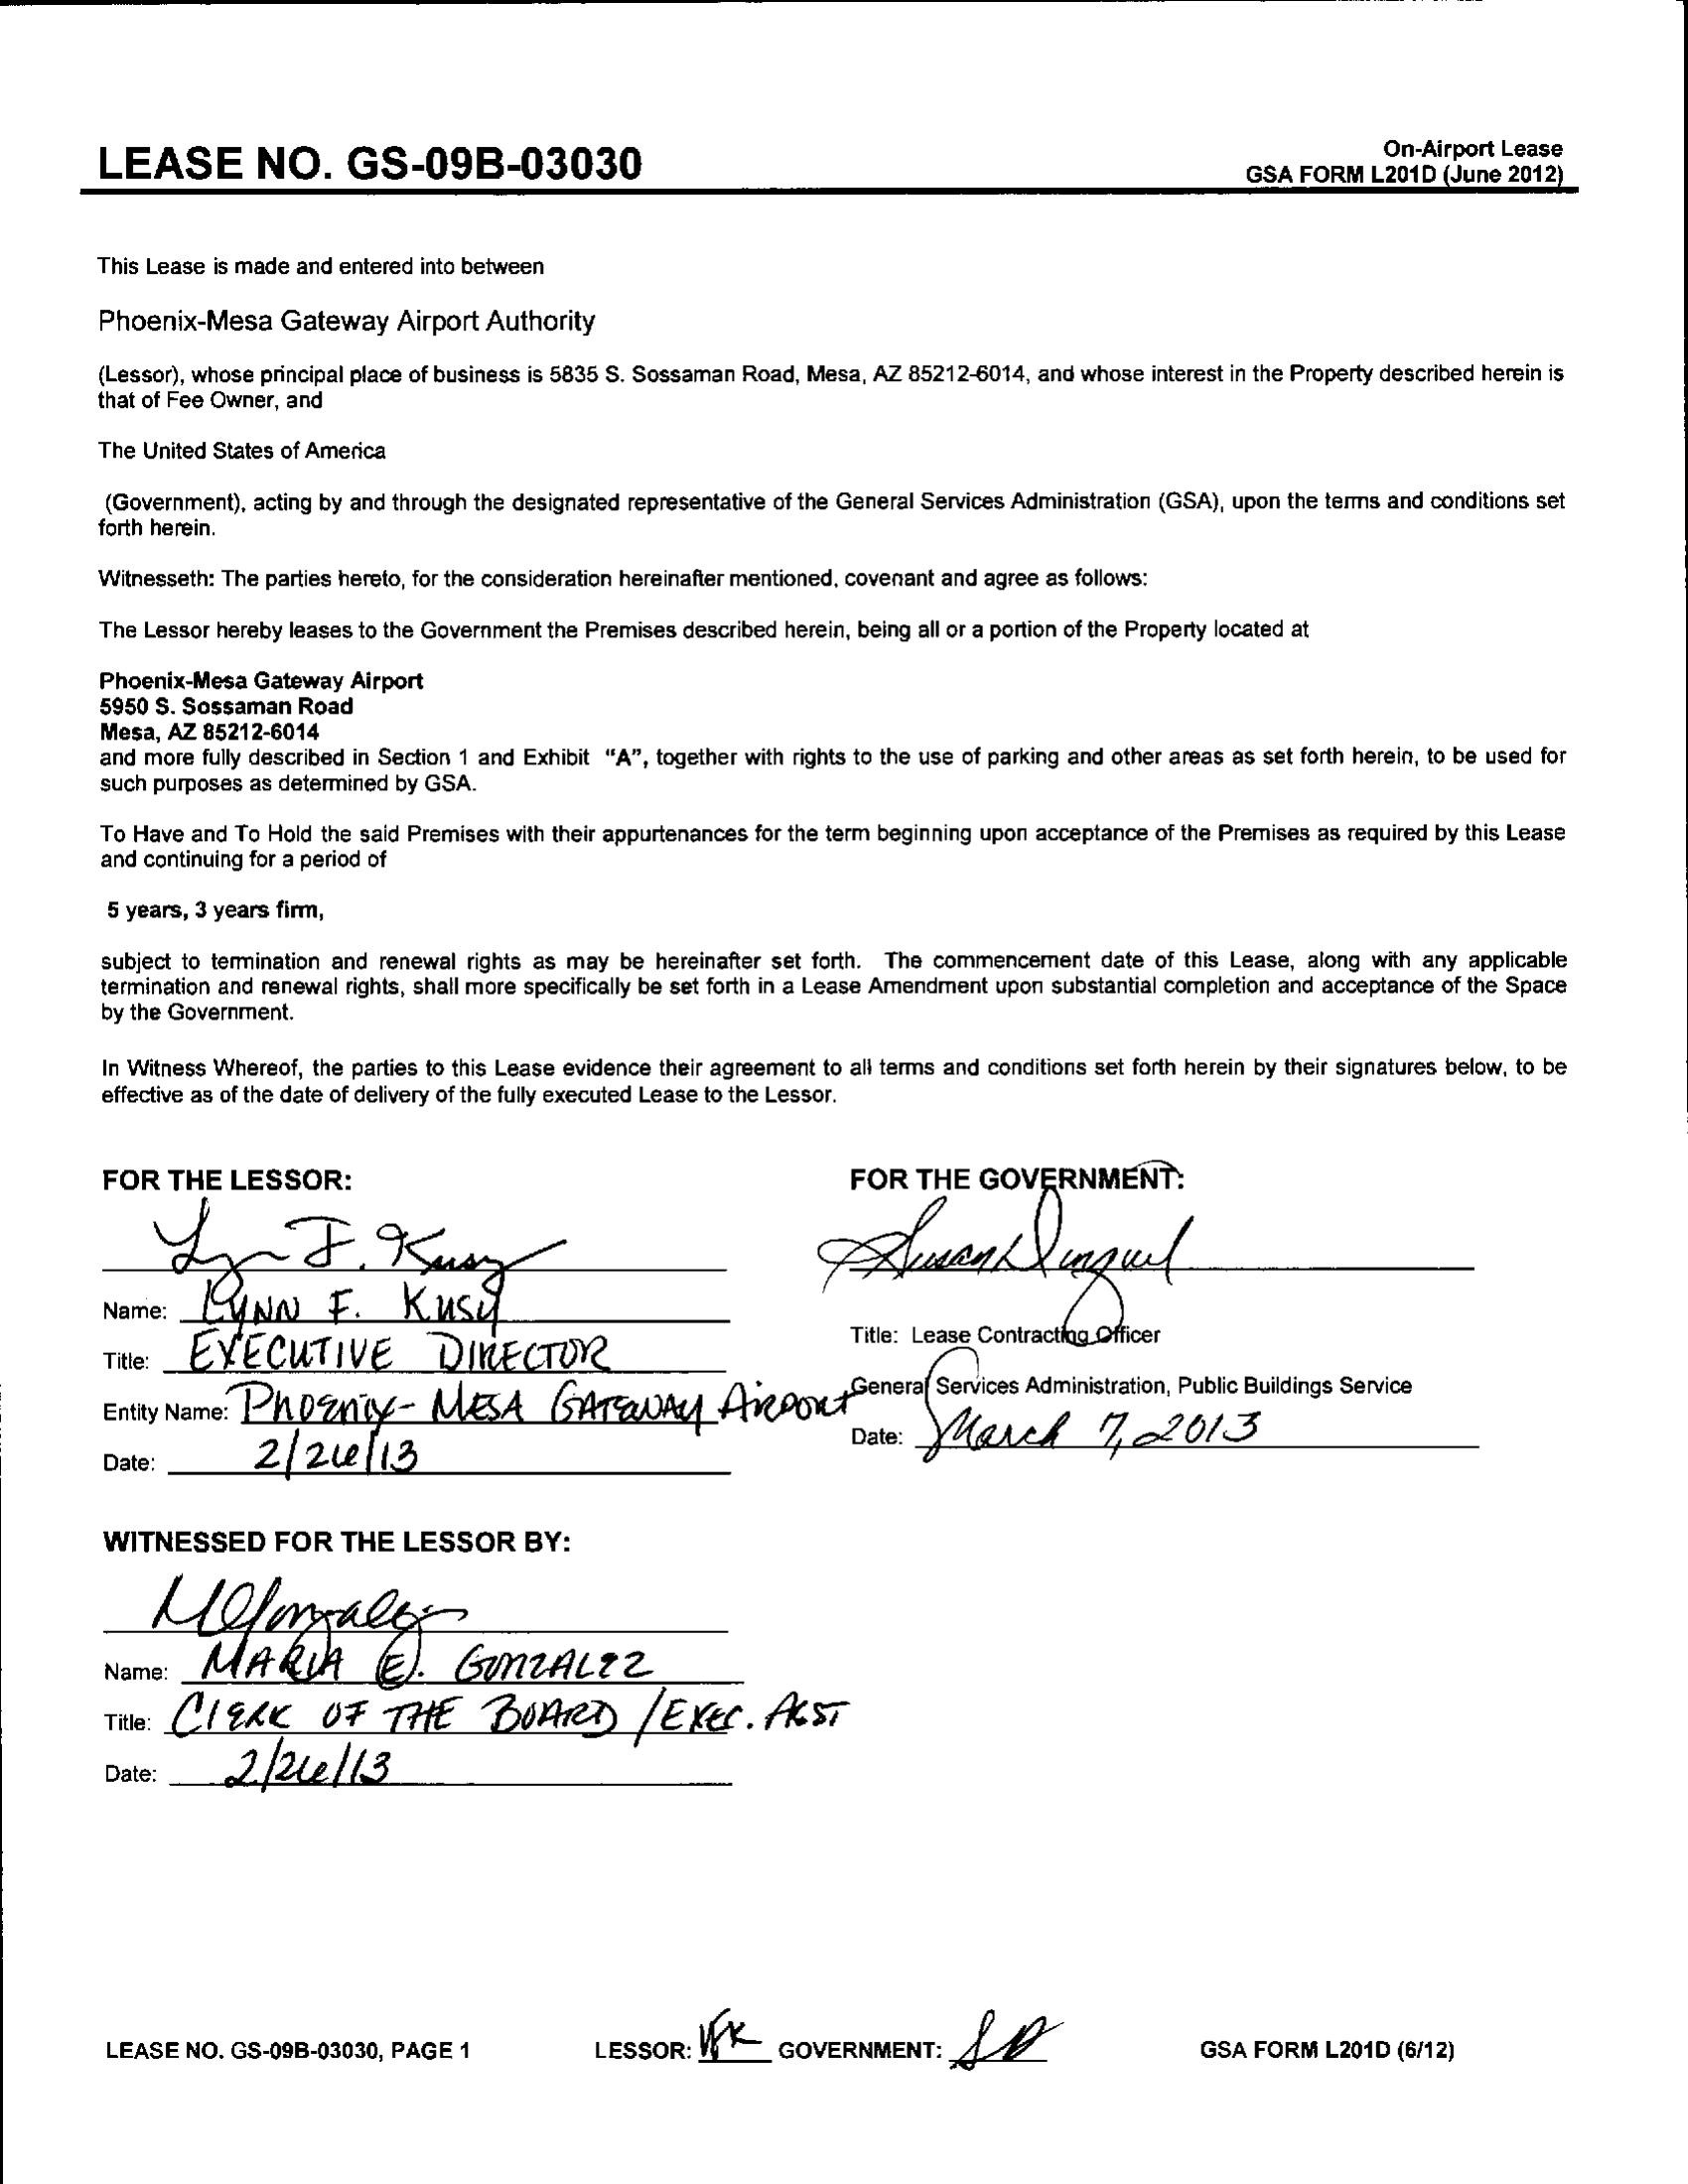 LEASE NO. GS-09B-03030
On-Airport Lease
GSA FORM L201D (June 2012)
This Lease is made and entered into between
Phoenix-Mesa Gateway Airport Authority
(Lessor), whose principal place of business is 5835 S. Sossaman Road, Mesa, AZ 85212-6014, and whose interest in the Property described herein is
that of Fee Owner, and
The United States of America
(Government), acting by and through the designated representative of the General Services Administration (GSA), upon the terms and conditions set
forth herein.
Witnesseth: The parties hereto, for the consideration hereinafter mentioned, covenant and agree as follows:
The Lessor hereby leases to the Government the Premises described herein, being all or a portion of the Property located at
Phoenix-Mesa Gateway Airport
5950 S. Sossaman Road
Mesa, AZ 85212-6014
and more fully described in Section 1 and Exhibit "A", together with rights to the use of parking and other areas as set forth herein, to be used for
such purposes as determined by GSA.
To Have and To Hold the said Premises with their appurtenances for the term beginning upon acceptance of the Premises as required by this Lease
and continuing for a period of
5 years, 3 years firm,
subject to termination and renewal rights as may be hereinafter set forth. The commencement date of this Lease, along with any applicable
termination and renewal rights, shall more specifically be set forth in a Lease Amendment upon substantial completion and acceptance of the Space
by the Government.
In Witness Whereof, the parties to this Lease evidence their agreement to all terms and conditions set forth herein by their signatures below, to be
effective as of the date of delivery of the fully executed Lease to the Lessor.
FOR THE LESSOR:
Lynn F. Kusy
Name: LYNN F. KUSY
Title: EXECUTIVE DIRECTOR
Entity Name: PHOENIX-MESA GATEWAY AIRPORT
Date: 2/26/13
FOR THE GOVERNMENT:
Susan
Title: Lease Contracting Officer
General Services Administration, Public Buildings Service
Date: March 7, 2013
WITNESSED FOR THE LESSOR BY:
MEGonzalez
Name: MARIA E. GONZALEZ
Title: CLERK OF THE BOARD / EXEC. ASST
Date: 2/26/13
LEASE NO. GS-09B-03030, PAGE 1
LESSOR: LFK GOVERNMENT: SD
GSA FORM L201D (6/12)